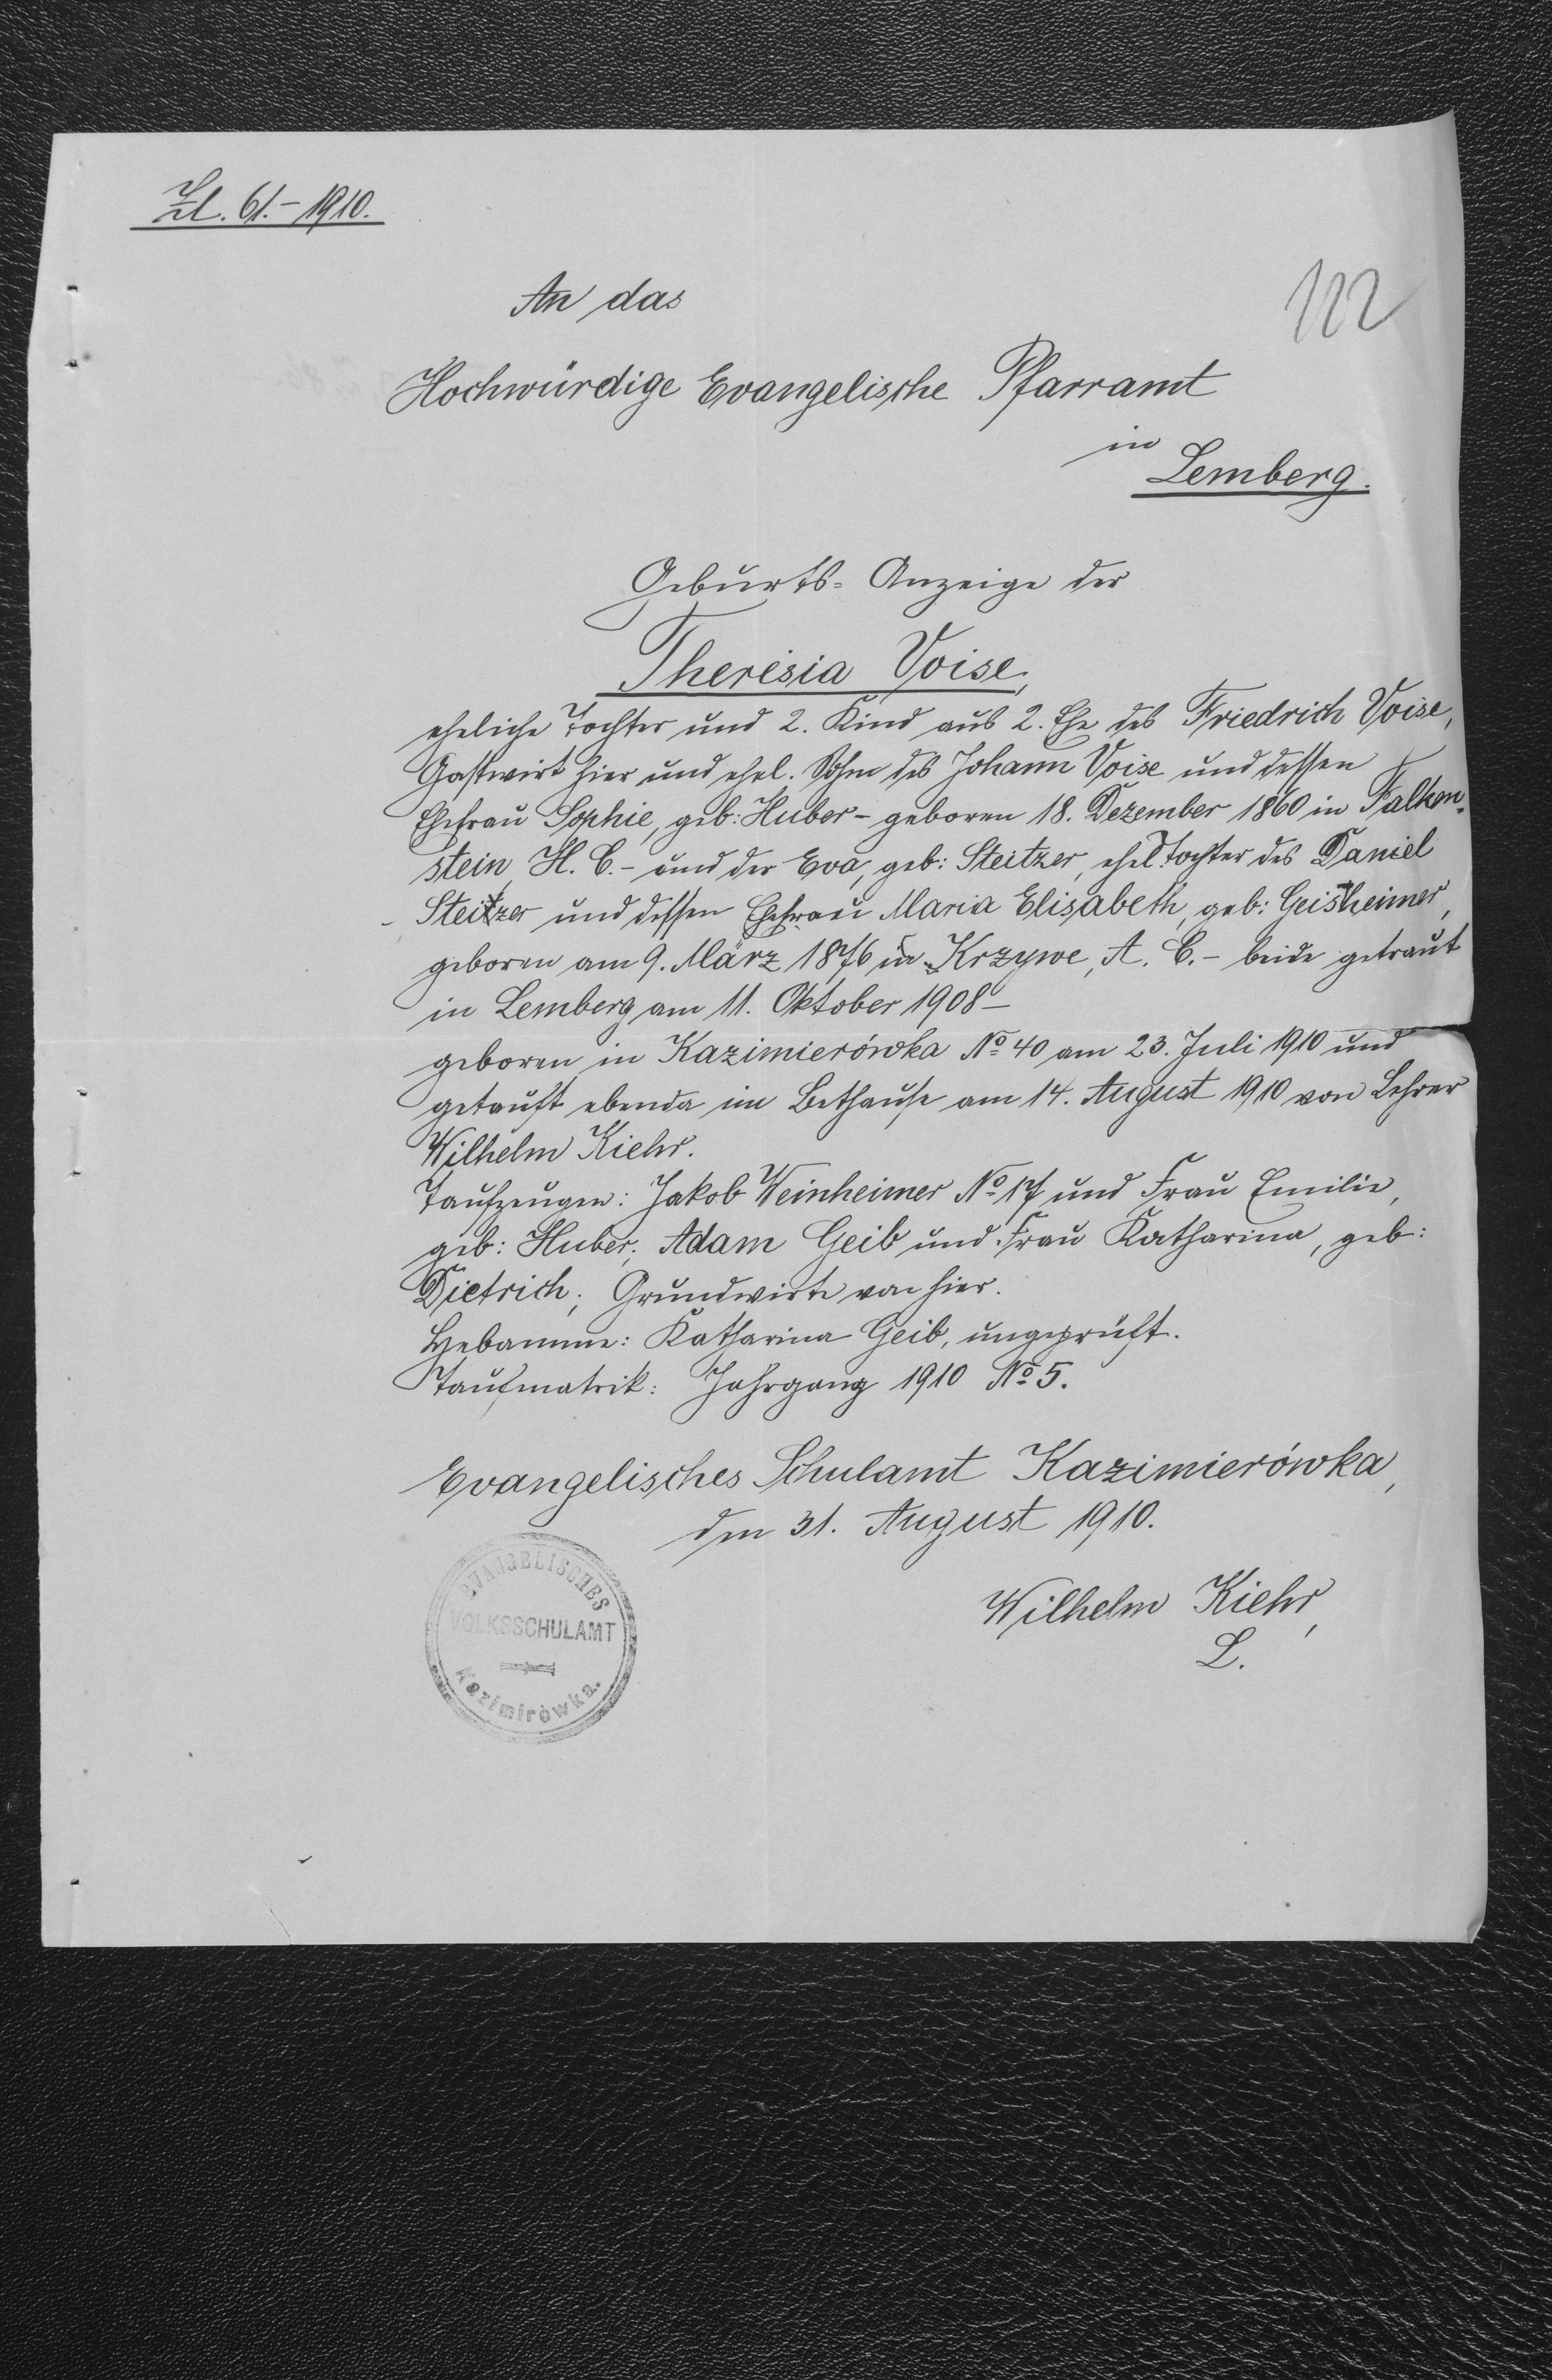 Zl. 61.- 1910.
122
An das
Hochwürdige Evangelische Pfarramt
in
Lemberg.
Geburts- Anzeige der
Theresia Voise,
eheliche Tochter und 2. Kind aus 2. Ehe des Friedrich Voise,
Gastwirt hier und ehel. Sohn des Johann Voise und dessen
Ehefrau Sophie, geb: Huber - geboren 18. Dezember 1860 in Falken-
stein, H. C. - und der Eva, geb: Steitzer, ehel. Tochter des Daniel
Steitzer und dessen Ehefrau Maria Elisabeth, geb: Geistheimer,
geboren am 9. März 1876 in Krzywe, A. C. - beide getraut
in Lemberg am 11. Oktober 1908 -
geboren in Kazimierówka No 40 am 23. Juli 1910 und
getauft ebenda im Bethause am 14. August 1910 von Lehrer
Wilhelm Kiehr.
Taufzeugen: Jakob Weinheimer No 17 und Frau Emilie,
geb: Huber; Adam Geib und Frau Katharina, geb:
Dietrich; Grundwirte von hier.
Hebamme: Katharina Geib, ungeprüft.
Taufmatrik: Jahrgang 1910 No 5.
Evangelisches Schulamt Kazimierówka,
den 31. August 1910.
Wilhelm Kiehr,
L.
EVANGELISCHES
VOLKSSCHULAMT
Kazimirówka.